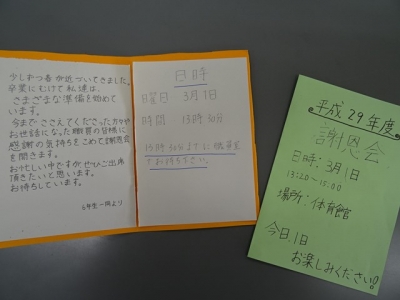 少しずつ春が近づいてきました。
卒業にむけて私達は、
さまざまな準備を始めて
います。
今まで、ささえてくださった方々や
お世話になった職員の皆様に
感謝の気持ちをこめて謝恩会
を開きます。
お忙しい中ですが、ぜひご出席
頂きたいと思います。
お待ちしています。
6年生一同より
日時
曜日 3月1日
時間 13時20分
でお待ち下さい。
平成29年度
謝恩会
日時:3月1日
13:20~15:00
場所:体育館
今日1日
お楽しみください!